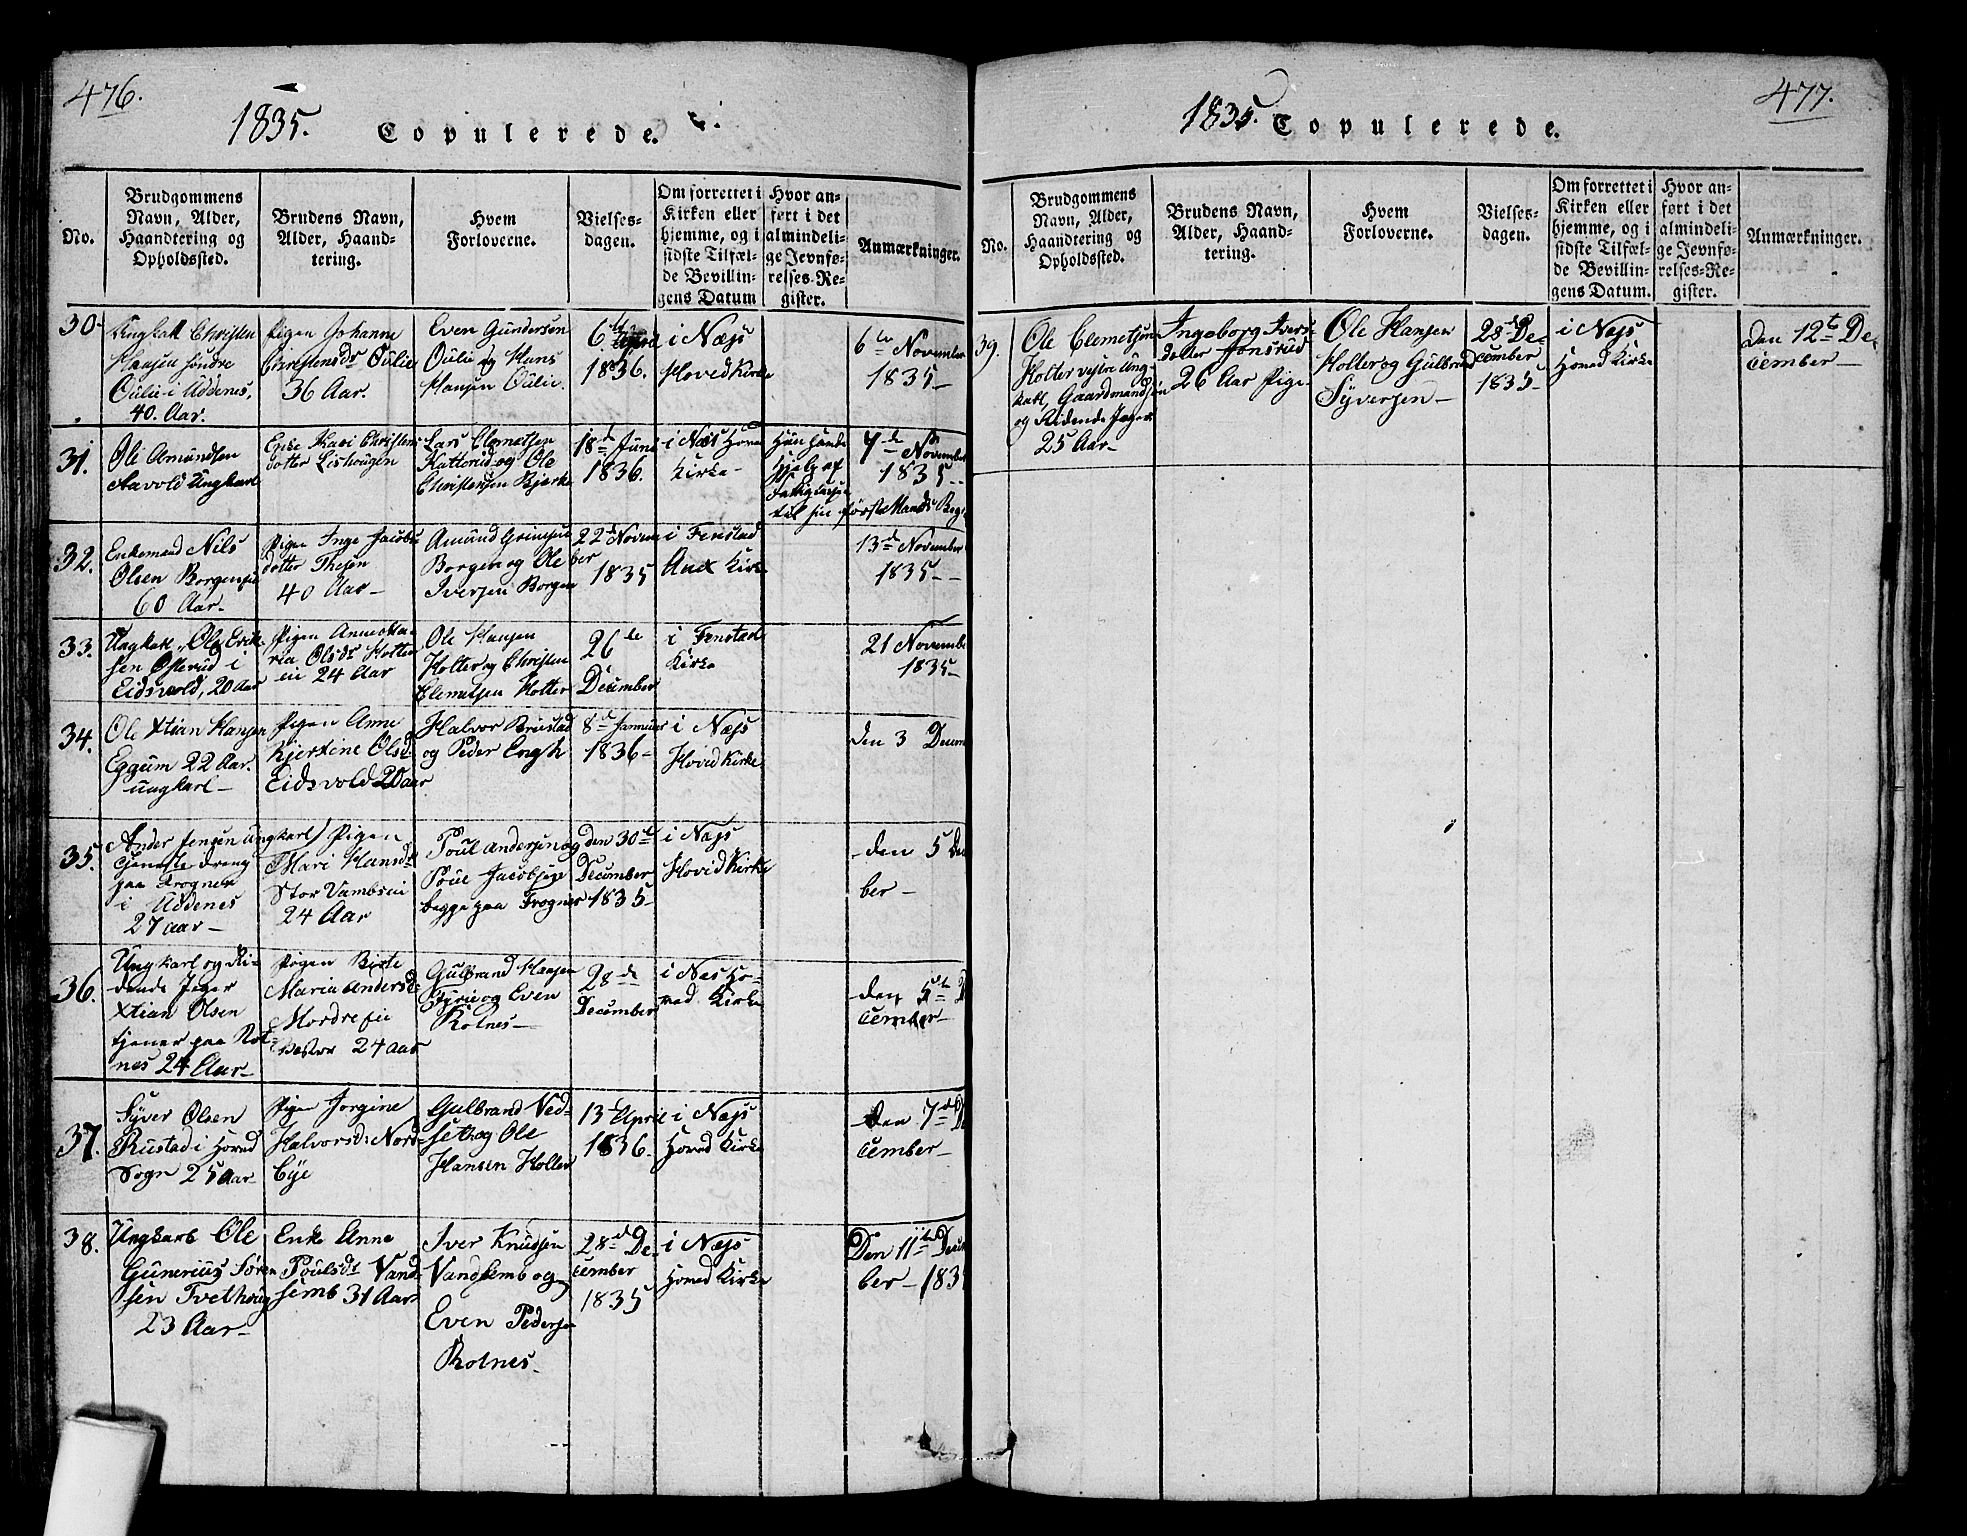 476.
1835.
Copulerede.
No.
Brudgommens
Navn, Alder,
Haandtering og
Opholdssted.
Brudens Navn,
Alder, Haand-
tering.
Hvem
Forloverne.
Vielses-
dagen.
Om forrettet i
Kirken eller
hjemme, og i
sidste Tilfæl-
de Bevillin-
gens Datum
Hvor an-
ført i det
almindeli-
ge Jevnfø-
relses-Re-
gister.
Anmærkninger.
30.
Ungkall Christen
Hansen søndre
Oulie i Uddenes,
40. Aar.
Pigen Johanne
Christensdr Oulie
36 Aar.
Even Gundersen
Oulie og Hans
Hansen Oulie.
6te
1836.
i Næs
Hoved Kirke
6te November
1835
31.
Ole Amundsen
Aavold Ungkarl
Enke Kari Christens
dotter Lishougen
Lars Clemetsen
Kattorud og Ole
Christensen Bjerke
18de Juni
1836.
i Næs Hoved
Kirke
Hun havde
Hjelp af
til sin første Mands Beg
7de November
1835
32.
Enkemand Nils
Olsen Borgen
60 Aar.
Pigen Inge Jacobs
dotter Thesen
40 Aar
Amund Grimsen
Borgen og Ole
Iversen Borgen
22de Novem
ber
1835
i Fenstad
Anex Kirke
13de November
1835
33.
Ungkall Ole Erik
sen Osterud i
Eidsvold, 20 Aar
Pigen Anne Ma-
ria Olsdr Holter
24 Aar
Ole Hansen
Holter og Christen
Clemetsen Holter
26de
December
i Fenstad
Kirke
21 November
1835
34.
Ole Xtian Hansen
Eggum 22 Aar.
ungkarl
Pigen Anne
Kjerstine Olsd:
Eidsvold 20 aar
Halvor Brustad
og Peder Engh
8de Januar
1836
i Næs
Hoved Kirke
den 3 Decem
35.
Ander Jensen ungkarl)
tjeneste dreng
paa Frogner
i Uddenes
27 aar
Pigen
Mari Hansdr
Stor Vambsei
24 Aar
Poul Andersen og
Poul Jacobsen
begge paa Frogner
den 30te
December
1835
i Næs
Hoved Kirke
den 5 De
ber
36.
Ungkarl og Ri-
dende Jeger
Xtian Olsen
tjener paa Rol-
nes 24 Aar
Pigen Birte
Maria Andersd
Mordre
24 aar
Gulbrand Hansen
Fyrie og Even
Rolnes
28de
December
i Næs Ho-
ved Kirke
den 5te D
cember
37.
Syver Olsen
Rustad i Hoved
Sogn 25 aar
Pigen Jorgine
Halvorsd: Nord-
bye
Gulbrand Ved-
seth og Ole
Hansen Holter
13de April
1836.
i Næs
Hoved Kirke
Den 7de De
cember
38.
Ungkarl Ole
Gunerius Søren
sen Tvethoug
23 Aar
Enke Anne
Poulsdr Vand
semb 31 Aar
Iver Knudsen
Vandsemb og
Even Pedersen
Rolnes
28de De-
cember
1835
i Næs
Hoved Kirke
Den 11te Decem
ber 183
477.
1835.
Copulerede.
No.
Brudgommens
Navn, Alder,
Haandtering og
Opholdssted.
Brudens Navn,
Alder, Haand-
tering.
Hvem
Forloverne.
Vielses-
dagen.
Om forrettet i
Kirken eller
hjemme, og i
sidste Tilfæl-
de Bevillin-
gens Datum.
Hvor an-
ført i det
almindeli-
ge Jevnfø-
relses-Re-
gister.
Anmærkninger.
39.
Ole Clemetsen
Holter vestre Ung-
karl, Gaardmandsøn
og Ridende Jeger
25 Aar
Ingeborg Ivers
dotter Jonsrud
26 Aar Pige
Ole Hansen
Holter og Gulbrand
Syversen
28de De-
cember
1835
i Næs
Hoved Kirke
Den 12te De-
cember